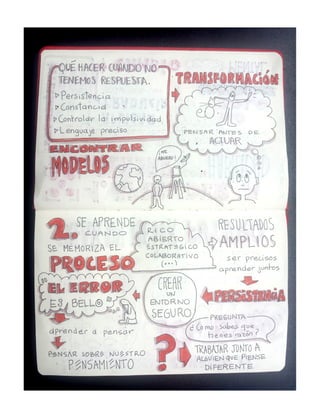 QUÉ HACER CUANDO NO
TENEMOS RESPUESTA.
Persistencia
Constancia
Controlar la impulsividad
Lenguaje preciso
TRANSFORMACIÓN
PENSAR ANTES DE
ACTUAR
ENCONTRAR
MODELOS
2. SE APRENDE
CUANDO
SE MEMORIZA EL
PROCESO
RICO
ABIERTO
ESTRATÉGICO
COLABORATIVO
(...)
RESULTADOS
AMPLIOS
ser precisos
aprender juntos
EL ERROR
ES BELLO
CREAR
UN
ENTORNO
SEGURO
PERSISTENCIA
aprender a pensar
PENSAR SOBRE NUESTRO
PENSAMIENTO
PREGUNTA
¿Cómo sabes que
tienes razón?
?
TRABAJAR JUNTO A
ALGUIEN QUE PIENSE
DIFERENTE